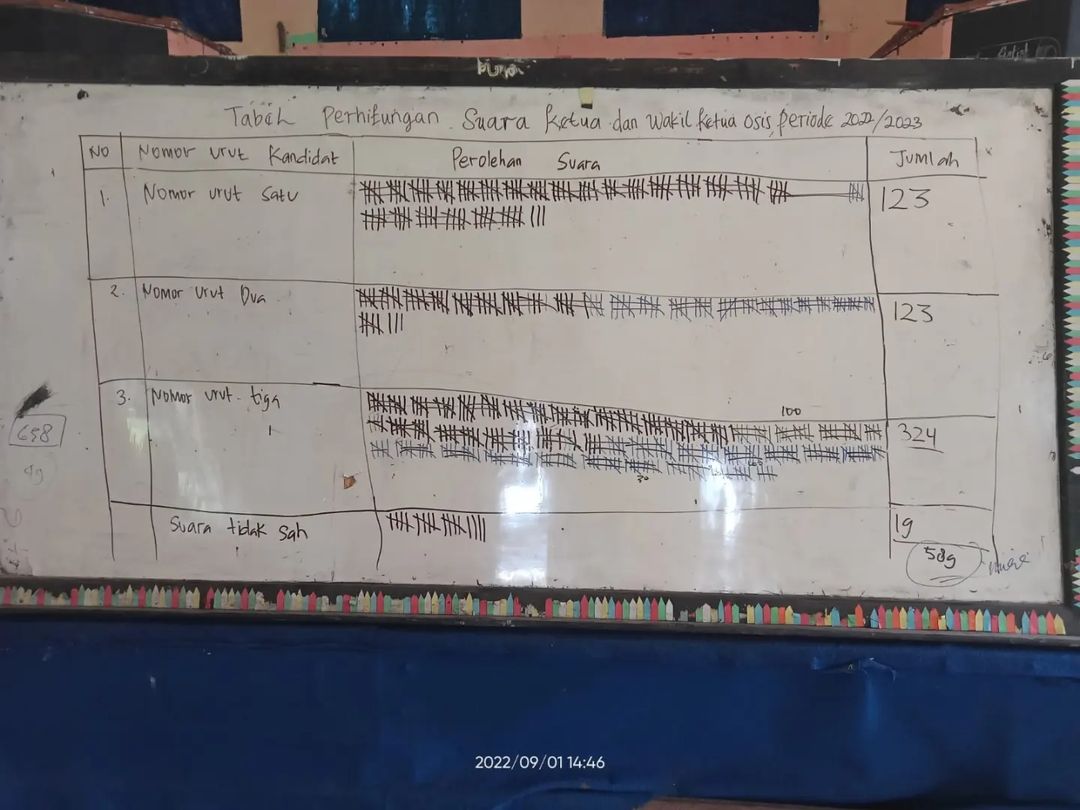 Tabel Perhitungan Suara Ketua dan Wakil Ketua Osis Periode 2022/2023
No Nomor Urut Kandidat Perolehan Suara Jumlah
1. Nomor urut satu 123
2. Nomor urut Dua 123
3. Nomor urut tiga 324
100
698
49
Suara tidak sah 19
589
2022/09/01 14:46